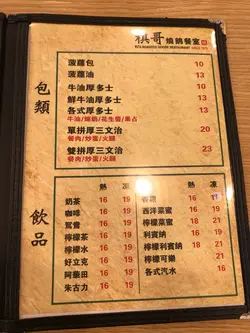 祺哥燒鵝餐室
KEI'S ROASTED GOOSE RESTAURANT
包類
菠蘿包 10
菠蘿油 13
牛油厚多士 10
鮮牛油厚多士 13
各式厚多士 13
牛油/煉奶/花生醬/果占
單拼厚三文治 20
餐肉/炒蛋/火腿
雙拼厚三文治 23
餐肉/炒蛋/火腿
飲品
熱 凍
奶茶 16 19
咖啡 16 19
鴛鴦 16 19
檸檬茶 16 19
檸檬水 16 19
好立克 16 19
阿華田 16 19
朱古力 16 19
熱 凍
16 19
西洋菜蜜 16 19
檸檬菜蜜 18 21
利賓納 16 19
檸檬利賓納 18 21
檸檬可樂 21
各式汽水 16